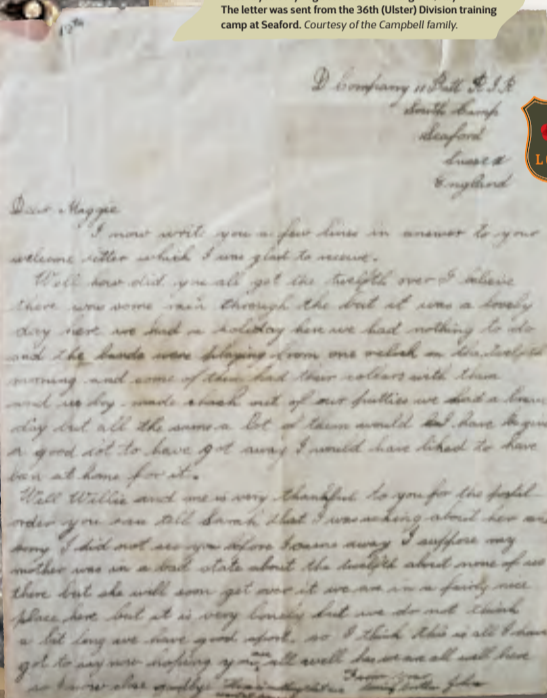 The letter was sent from the 36th (Ulster) Division training
camp at Seaford. Courtesy of the Campbell family.
12th
D Company 11 Batt R.I.R
South Camp
Seaford
Sussex
England
Dear Maggie
I now writ you a few lines in answer to your
welcome letter which I was glad to receive.
Well how did you all get the twelfth over I believe
there was some rain through the but it was a lovely
day here we had a holiday here we had nothing to do
and the bands were playing from one oclock in the twelfth
morning and some of them had their colours with them
and made out of our putties we had a
day but all the same a lot of them would have
a good lot to have got away I would have liked to have
at home for it.
Well Willie and me is very thankful to you for the postal
order you can tell Sarah that I was asking about her and
I did not see you before I came away I suppose my
mother was in a bad state about the twelfth about none of us
there but she will soon get over it we are in a fairly nice
place here but it is very lonely but we do not think
a bit long we have good sport. so I think this is all I have
got to say now hoping you are all well has we are all well here
so I now close goodbye
From your
John